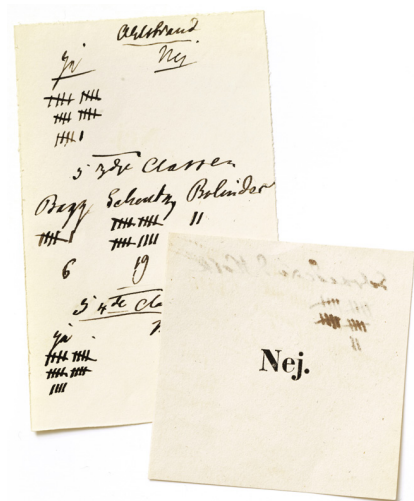 Ahlstrand
ja Nej
5 3dje Classen
Bagg Scheutz Bolinder
6 19
5 4de Cla
ja
Nej.